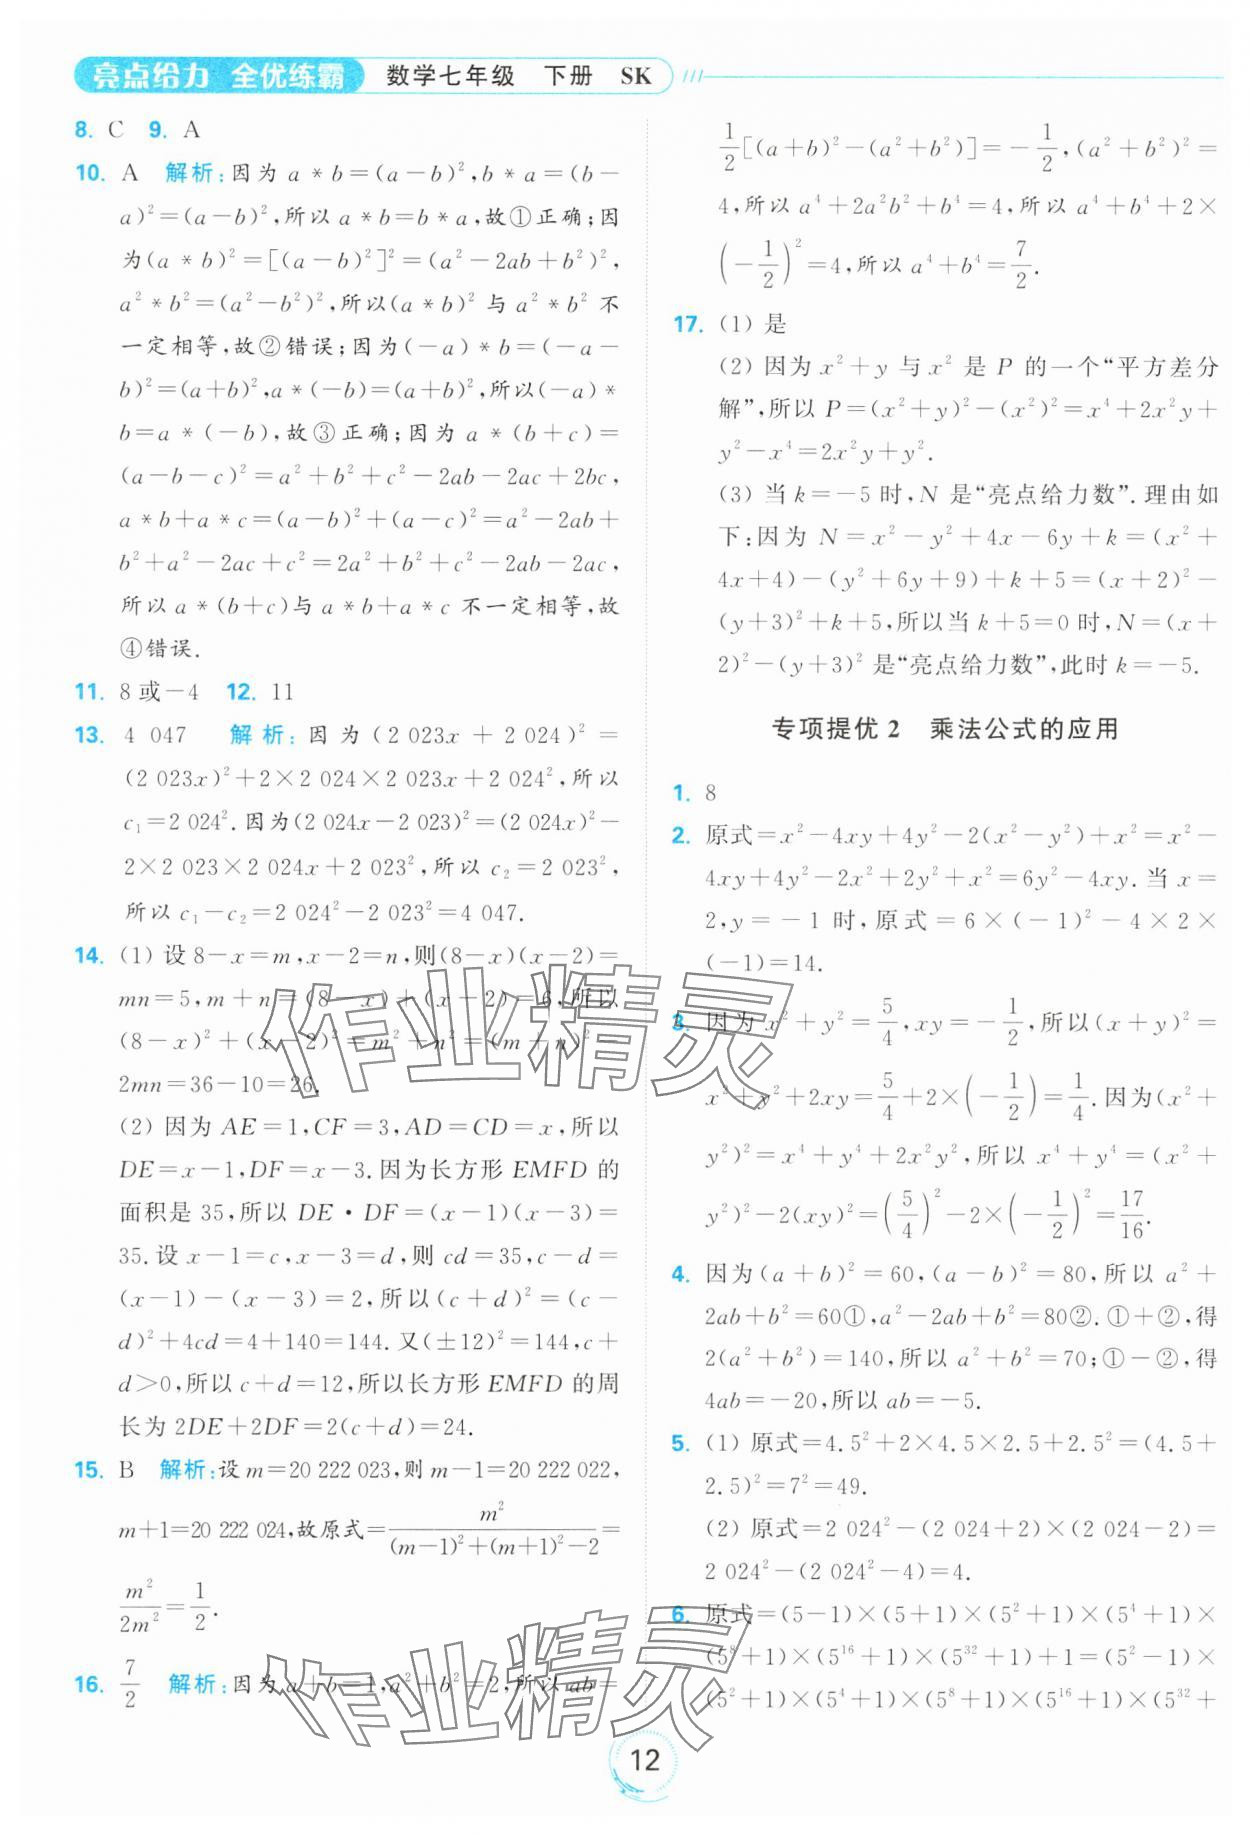 亮点给力 全优练霸 数学七年级 下册 SK
8. C 9. A
10. A 解析:因为 a * b=(a-b)²,b * a=(b-
a)²=(a-b)²,所以 a * b=b * a,故①正确;因
为(a * b)²=[(a-b)²]²=(a²-2ab+b²)²,
a² * b²=(a²-b²)²,所以(a * b)² 与 a² * b² 不
一定相等,故②错误;因为(-a) * b=(-a-
b)²=(a+b)²,a * (-b)=(a+b)²,所以(-a) *
b=a * (-b),故③正确;因为 a * (b+c)=
(a-b-c)²=a²+b²+c²-2ab-2ac+2bc,
a * b+a * c=(a-b)²+(a-c)²=a²-2ab+
b²+a²-2ac+c²=2a²+b²+c²-2ab-2ac,
所以 a * (b+c)与 a * b+a * c 不一定相等,故
④错误.
11. 8或-4 12. 11
13. 4 047 解析:因为(2 023x+2 024)²=
(2 023x)²+2×2 024×2 023x+2 024²,所以
c₁=2 024².因为(2 024x-2 023)²=(2 024x)²-
2×2 023×2 024x+2 023²,所以 c₂=2 023²,
所以 c₁-c₂=2 024²-2 023²=4 047.
14. (1) 设 8-x=m,x-2=n,则(8-x)(x-2)=
mn=5,m+n=(8-x)+(x-2)=6,所以
(8-x)²+(x-2)²=m²+n²=(m+n)²-
2mn=36-10=26.
(2) 因为 AE=1,CF=3,AD=CD=x,所以
DE=x-1,DF=x-3.因为长方形 EMFD 的
面积是 35,所以 DE·DF=(x-1)(x-3)=
35.设 x-1=c,x-3=d,则 cd=35,c-d=
(x-1)-(x-3)=2,所以(c+d)²=(c-
d)²+4cd=4+140=144.又(±12)²=144,c+
d>0,所以 c+d=12,所以长方形 EMFD 的周
长为 2DE+2DF=2(c+d)=24.
15. B 解析:设 m=20 222 023,则 m-1=20 222 022,
m+1=20 222 024,故原式=m²/((m-1)²+(m+1)²-2)=
m²/2m²=1/2.
16. 7/2 解析:因为 a+b=1,a²+b²=2,所以 ab=
1/2[(a+b)²-(a²+b²)]=-1/2,(a²+b²)²=
4,所以 a⁴+2a²b²+b⁴=4,所以 a⁴+b⁴+2×
(-1/2)²=4,所以 a⁴+b⁴=7/2.
17. (1) 是
(2) 因为 x²+y 与 x² 是 P 的一个“平方差分
解”,所以 P=(x²+y)²-(x²)²=x⁴+2x²y+
y²-x⁴=2x²y+y².
(3) 当 k=-5 时,N 是“亮点给力数”.理由如
下:因为 N=x²-y²+4x-6y+k=(x²+
4x+4)-(y²+6y+9)+k+5=(x+2)²-
(y+3)²+k+5,所以当 k+5=0 时,N=(x+
2)²-(y+3)² 是“亮点给力数”,此时 k=-5.
专项提优2 乘法公式的应用
1. 8
2. 原式=x²-4xy+4y²-2(x²-y²)+x²=x²-
4xy+4y²-2x²+2y²+x²=6y²-4xy.当 x=
2,y=-1 时,原式=6×(-1)²-4×2×
(-1)=14.
3. 因为 x²+y²=5/4,xy=-1/2,所以(x+y)²=
x²+y²+2xy=5/4+2×(-1/2)=1/4.因为(x²+
y²)²=x⁴+y⁴+2x²y²,所以 x⁴+y⁴=(x²+
y²)²-2(xy)²=(5/4)²-2×(-1/2)²=17/16.
4. 因为(a+b)²=60,(a-b)²=80,所以 a²+
2ab+b²=60①,a²-2ab+b²=80②.①+②,得
2(a²+b²)=140,所以 a²+b²=70;①-②,得
4ab=-20,所以 ab=-5.
5. (1) 原式=4.5²+2×4.5×2.5+2.5²=(4.5+
2.5)²=7²=49.
(2) 原式=2 024²-(2 024+2)×(2 024-2)=
2 024²-(2 024²-4)=4.
6. 原式=(5-1)×(5+1)×(5²+1)×(5⁴+1)×
(5⁸+1)×(5¹⁶+1)×(5³²+1)+1=(5²-1)×
(5²+1)×(5⁴+1)×(5⁸+1)×(5¹⁶+1)×(5³²+
作业精灵
作业精灵
12